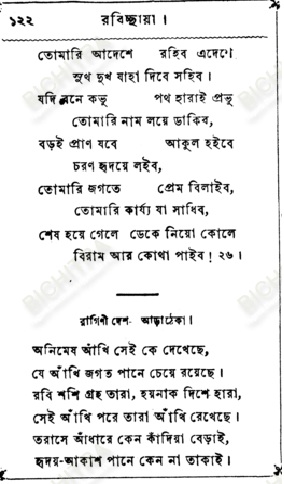 ১২২ রবিচ্ছায়া।
তোমারি আদেশে রহিব এদেশে
সুখ দুখ যাহা দিবে সহিব।
যদি বনে কভু পথ হারাই প্রভু
তোমারি নাম লয়ে ডাকিব,
বড়ই প্রাণ যবে আকুল হইবে
চরণ হৃদয়ে লইব,
তোমারি জগতে প্রেম বিলাইব,
তোমারি কার্য্য যা সাধিব,
শেষ হয়ে গেলে ডেকে নিয়ো কোলে
বিরাম আর কোথা পাইব! ২৬।
রাগিণী দেশ- আড়াঠেকা॥
অনিমেষ আঁখি সেই কে দেখেছে,
যে আঁখি জগত পানে চেয়ে রয়েছে।
রবি শশি গ্রহ তারা, হয়নাক দিশে হারা,
সেই আঁখি পরে তারা আঁখি রেখেছে।
তরাসে আঁধারে কেন কাঁদিয়া বেড়াই,
হৃদয়-আকাশ পানে কেন না তাকাই।